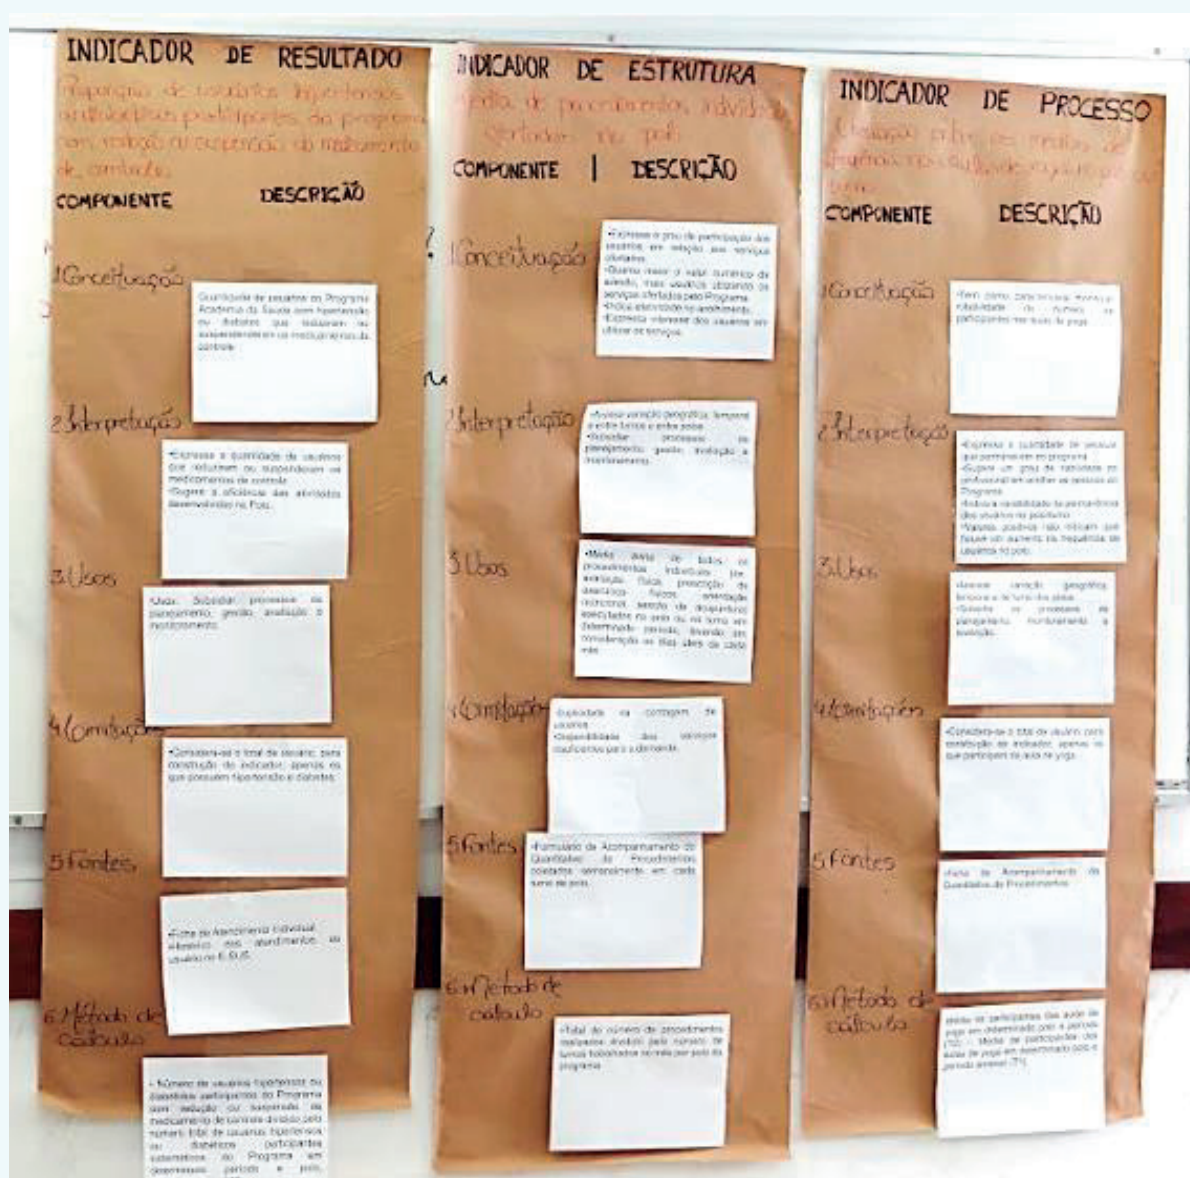 INDICADOR DE RESULTADO
Proporção de usuários hipertensos
participantes do programa
com redução ou suspensão do medicamento
de controle.
COMPONENTE DESCRIÇÃO
1.Conceituação
Quantidade de usuários do Programa
Academia da Saúde com hipertensão
ou diabetes que reduziram ou
suspenderam os medicamentos de
controle.
2.Interpretação
•Expressa a quantidade de usuários
que reduziram ou suspenderam os
medicamentos de controle.
•Sugere a eficiência das atividades
desenvolvidas no Polo.
3.Usos
Subsidiar processos de
planejamento, gestão, avaliação e
monitoramento.
4.
•Considera-se o total de usuário, para
construção do indicador, apenas os
que possuem hipertensão e diabetes.
5 Fontes
•Ficha de Atendimento Individual
dos atendimentos do
usuário no E-SUS.
6.Método de
cálculo
- Número de usuários hipertensos ou
diabéticos participantes do Programa
com redução ou suspensão de
medicamento de controle dividido pelo
número total de usuários hipertensos
ou diabéticos participantes
sistemáticos do Programa em
determinado período e polo,
INDICADOR DE ESTRUTURA
Média de procedimentos individuais
ofertados no polo
COMPONENTE | DESCRIÇÃO
1Conceituação
•Expressa o grau de participação dos
usuários em relação aos serviços
ofertados.
•Quanto maior o valor numérico da
adesão, mais usuários utilizando os
serviços ofertados pelo Programa.
•Indica efetividade no acolhimento.
•Expressa interesse dos usuários em
utilizar os serviços.
2.Interpretação
variação geográfica, temporal
e entre turnos e entre polos.
•Subsidiar processos de
planejamento, gestão, avaliação e
monitoramento.
3 Usos
•Média diária de todos os
procedimentos individuais
avaliação física, prescrição de
exercícios físicos, orientação
nutricional, sessão de
executados no polo ou no turno em
determinado período, levando em
consideração os dias úteis de cada
mês.
4
na contagem de
usuários.
•Disponibilidade dos serviços
insuficientes para a demanda.
5 Fontes
•Formulário de Acompanhamento do
Quantitativo de Procedimentos
coletados semanalmente em cada
turno de polo.
6.Método de
cálculo
•Total do número de procedimentos
realizados dividido pelo número de
turnos trabalhados no mês por polo do
programa.
INDICADOR DE PROCESSO
Variação entre as médias de
COMPONENTE DESCRIÇÃO
1Conceituação
•Tem como
rotatividade do número de
participantes nas aulas de yoga.
2.Interpretação
•Expressa a quantidade de pessoas
que permanecem no programa.
•Sugere um grau de habilidade do
profissional em acolher as pessoas do
Programa.
•Indica a variabilidade da permanência
dos usuários no polo/turno.
•Valores positivos não indicam que
houve um aumento na frequência de
usuários no polo.
3.Usos
variação geográfica,
temporal e de turno dos polos.
•Subsidia os processos de
planejamento, monitoramento e
avaliação.
4.
•Considera-se o total de usuário, para
construção do indicador, apenas os
que participam da aula de yoga.
5 Fontes
•Ficha de Acompanhamento do
Quantitativo de Procedimentos.
6.Método de
cálculo
•Média de participantes das aulas de
yoga em determinado polo e período
(T2) - Média de participantes das
aulas de yoga em determinado polo e
período anterior (T1).